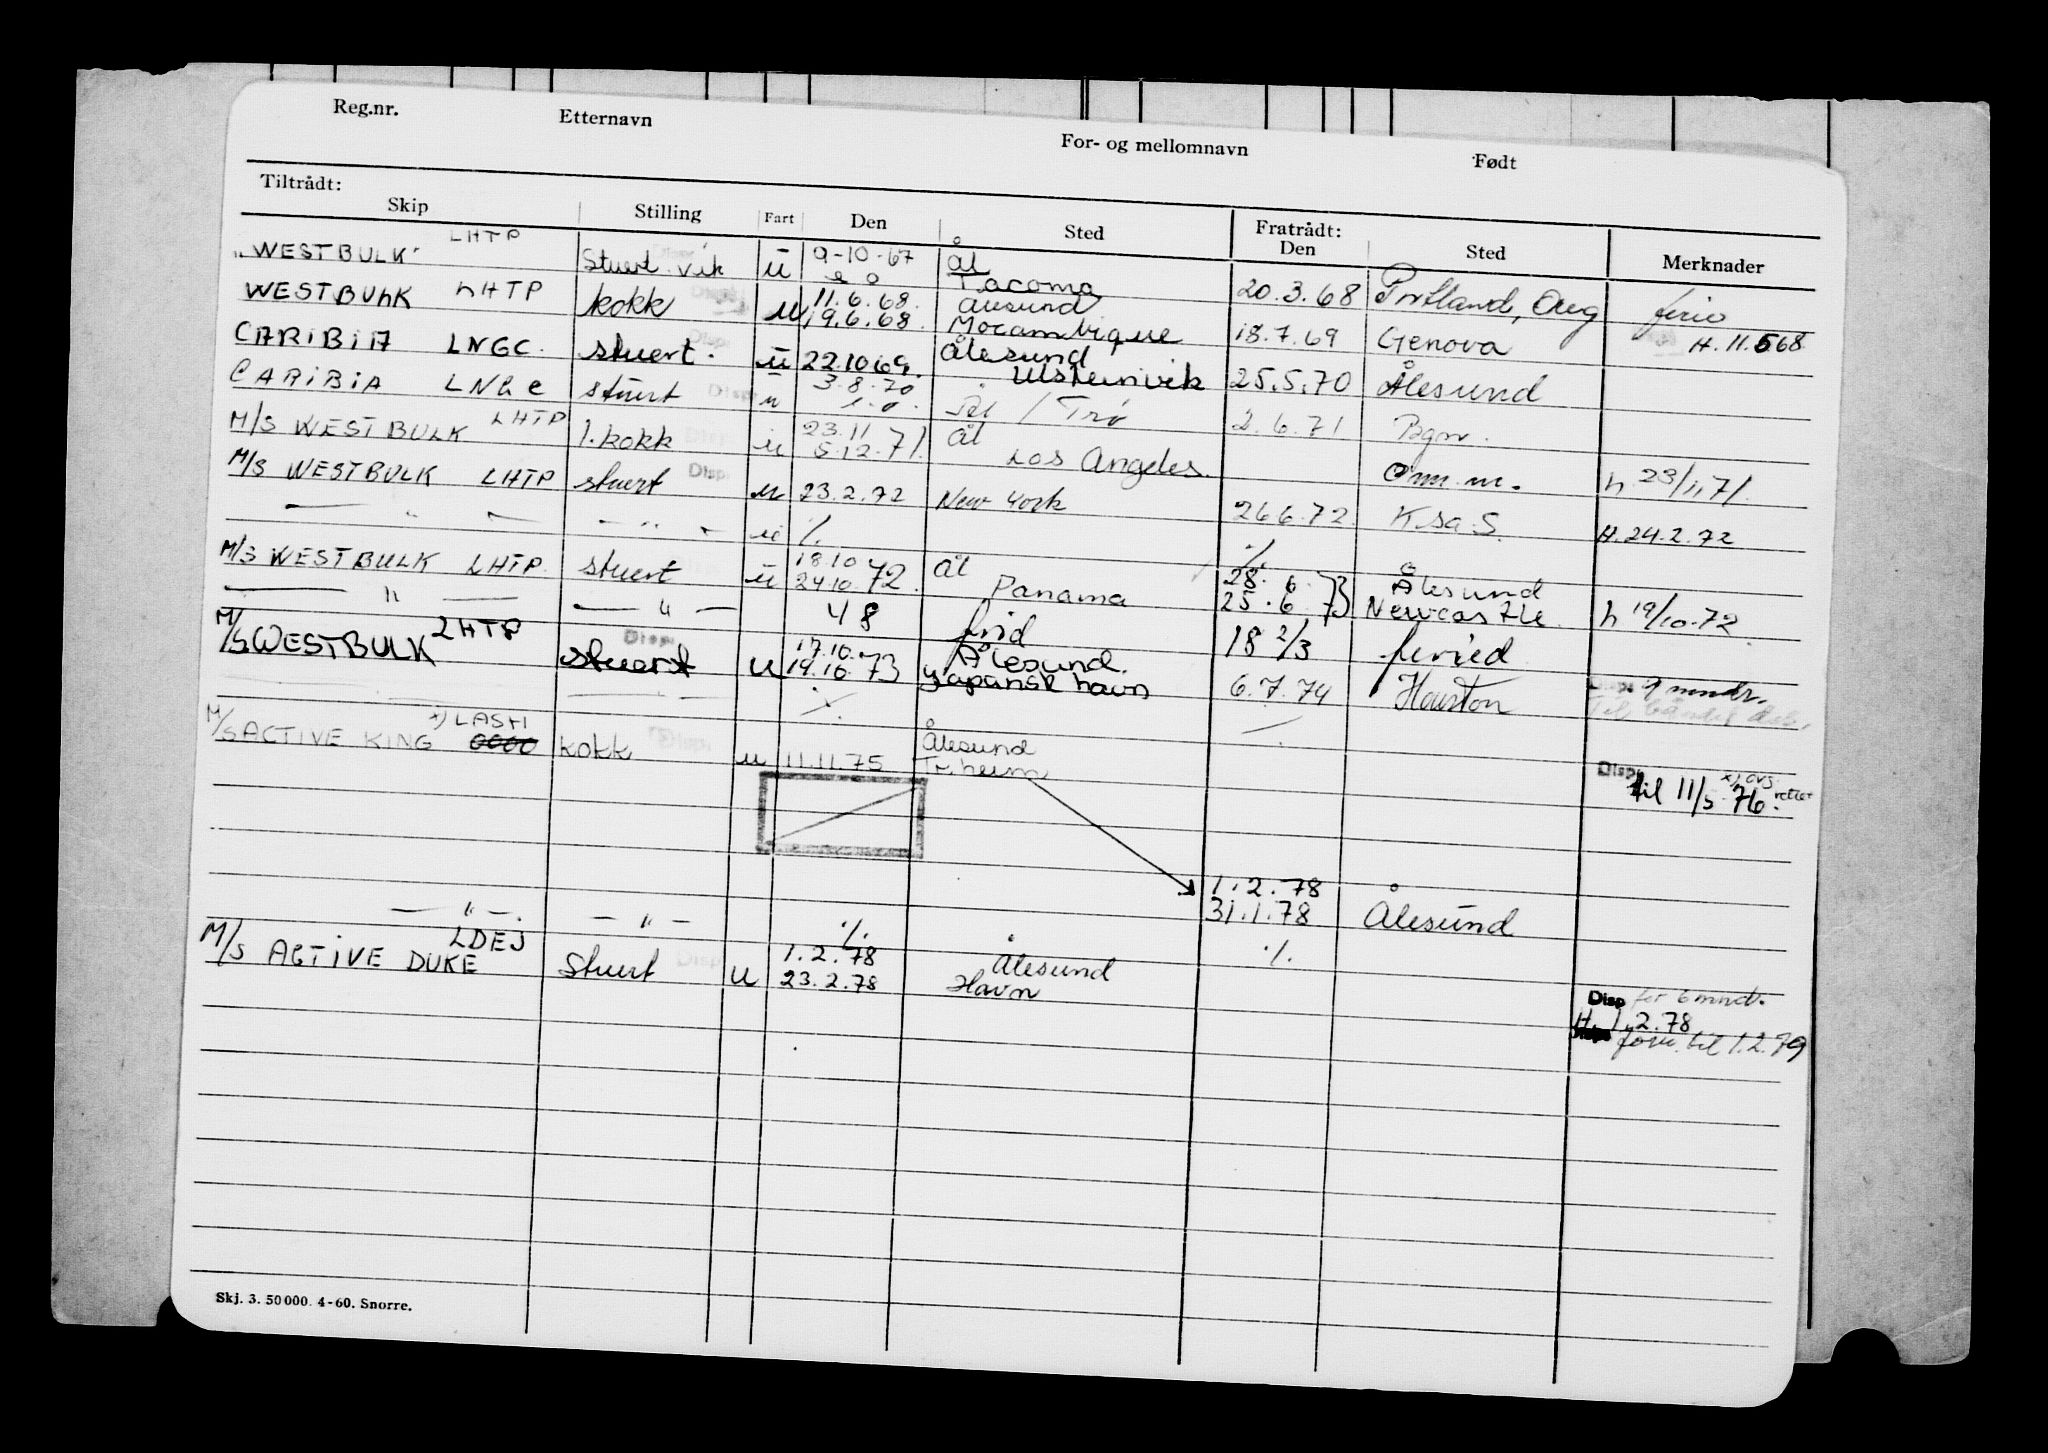 Reg.nr. Etternavn For- og mellomnavn Født
Tiltrådt: Fratrådt:
Skip Stilling Fart Den Sted Den Sted Merknader
"WESTBULK" LHTP Stuert vik ū 9-10-67 Ål 20.3.68 Portland, Oreg ferie
e o Tacoma H. 11.568
WESTBULK LHTP kokk u 11.6.68. Ålesund 18.7.69 Genova
19.6.68. Mocambique
CARIBIA LNGC. stuert. ū 22.10 69. Ålesund 25.5.70 Ålesund
Ulsteinvik
CARIBIA LNGC stuert u 3.8.70 / Trø 2.6.71 Bgn.
e.o.
M/S WESTBULK LHTP 1. kokk u 23.11 Ål Omm. h 23/11 71.
5.12.71. Los Angeles.
M/S WESTBULK LHTP stuert Disp. u 23.2.72 New York 26 6.72. K.sa.S. H.24.2.72
— " — — " — u ./. ./.
M/S WESTBULK LHTP. stuert ū 18.10 Ål 28. 6. 73 Ålesund
24.10.72. Panama 25. 6. 73 Newcastle h 19/10.72.
— " — — " — 48 frid 18 2/3 feried
M/S WESTBULK LHTP stuert Disp. u 17.10. Ålesund. 6.7.74 Houston Disp. 9 mndr.
19.10.73 Japansk havn
./. ./.
M/S ACTIVE KING x) LASH kokk Disp. u 11.11.75 Ålesund Disp. x) ovs. rettet
0000 Tr.heim til 11/5 76.
1.2.78
— " —. — " — ./. 31.1.78 Ålesund
M/S ACTIVE DUKE LDEJ Stuert Disp. u 1.2.78 Ålesund ./.
23.2.78 Havn
Disp for 6 mnd.
H. 1.2.78
forl. til 1.2.79
Skj. 3. 50 000. 4-60. Snorre.